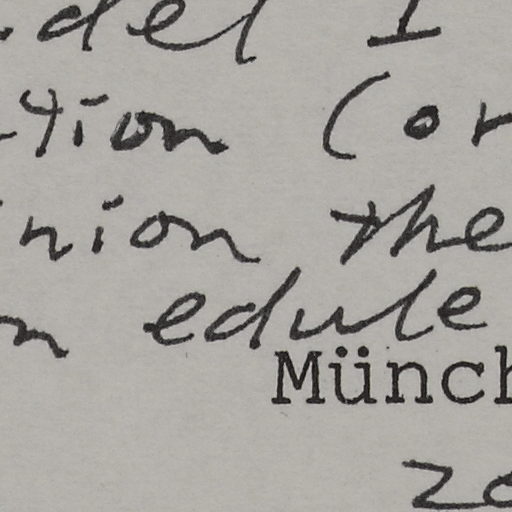 del I
tion (or
nion the
m edule
Münch
20